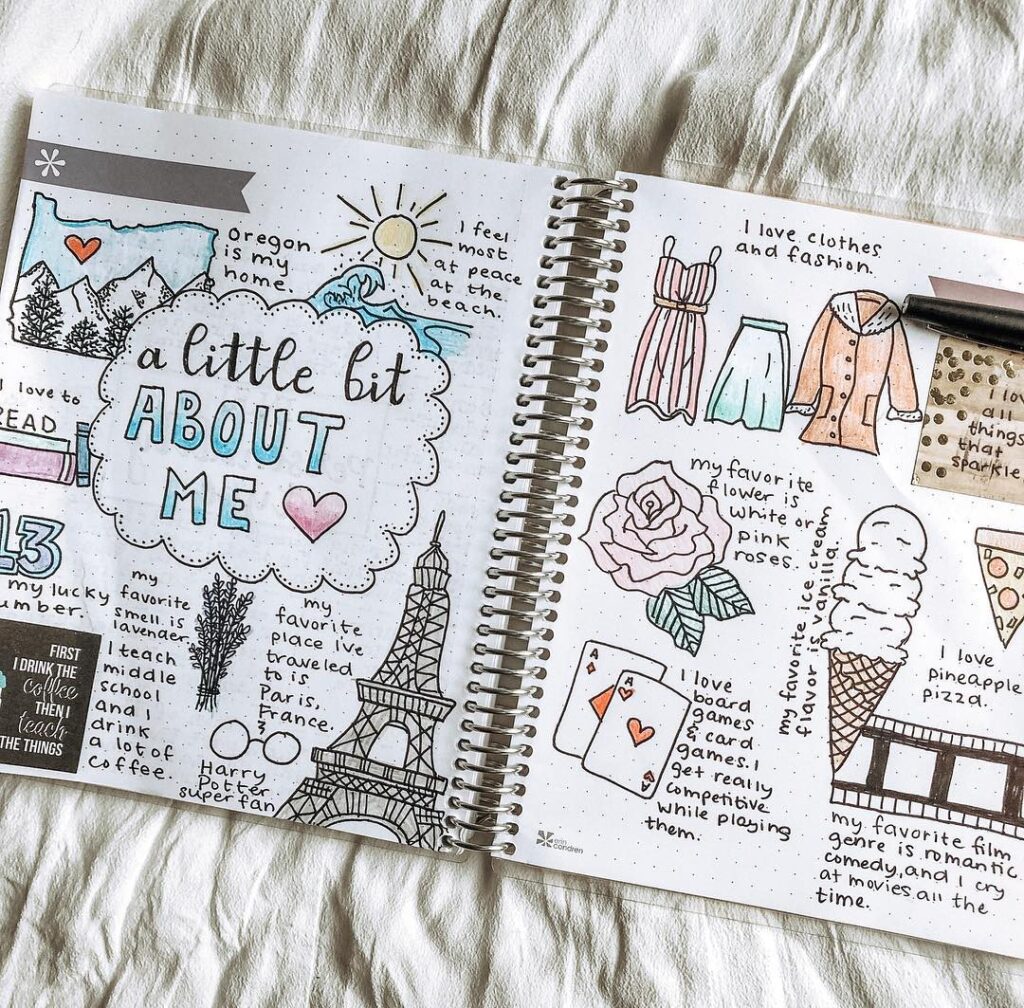 Oregon
is my
home.
I feel
most
at peace
at the
beach.
a little bit
ABOUT
ME
I love to
READ
13
my lucky
number.
my
favorite
smell is
lavender.
I teach
middle
school
and I
drink
a lot of
coffee.
FIRST
I DRINK THE
coffee
THEN I
teach
THE THINGS
my
favorite
place I've
traveled
to is
Paris,
France.
Harry
Potter
super fan
I love clothes
and fashion.
I love
all
things
that
sparkle
my favorite
flower is
white or
pink
roses.
my favorite ice cream
flavor is vanilla.
I love
pineapple
pizza.
A
A
A
I love
board
games
& card
games. I
get really
competitive
while playing
them.
my favorite film
genre is romantic
comedy, and I cry
at movies all the
time.
erin
condren